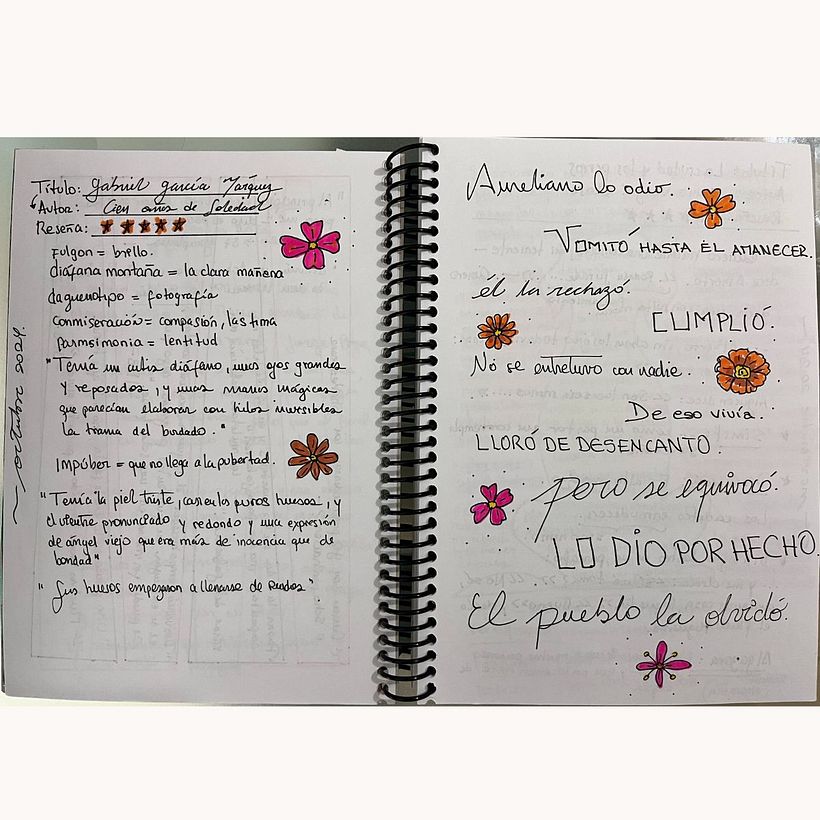 Título: Gabriel García Márquez
Autor: Cien años de Soledad
Reseña:
Fulgon = brillo.
diáfana montaña = la clara mañana
daguenotipo = fotografía
conmiseración = compasión, lástima
parmsimonia = lentitud
"Tenía un cutis diáfano, unos ojos grandes
y reposados, y unas manos mágicas
que parecían elaborar con hilos invisibles
la trama del bordado."
Impúber = que no llega a la pubertad.
"Tenía la piel triste, casi en los puros huesos, y
el vientre pronunciado y redondo y una expresión
de ángel viejo que era más de inocencia que de
bondad"
"Sus huesos empezaron a llenarse de ruidos"
~ octubre 2024.
Aureliano lo odio.
VOMITÓ HASTA EL AMANECER.
él la rechazó.
CUMPLIÓ.
No se entretuvo con nadie.
De eso vivía.
LLORÓ DE DESENCANTO.
Pero se equivocó.
LO DIO POR HECHO.
El pueblo la olvidó.